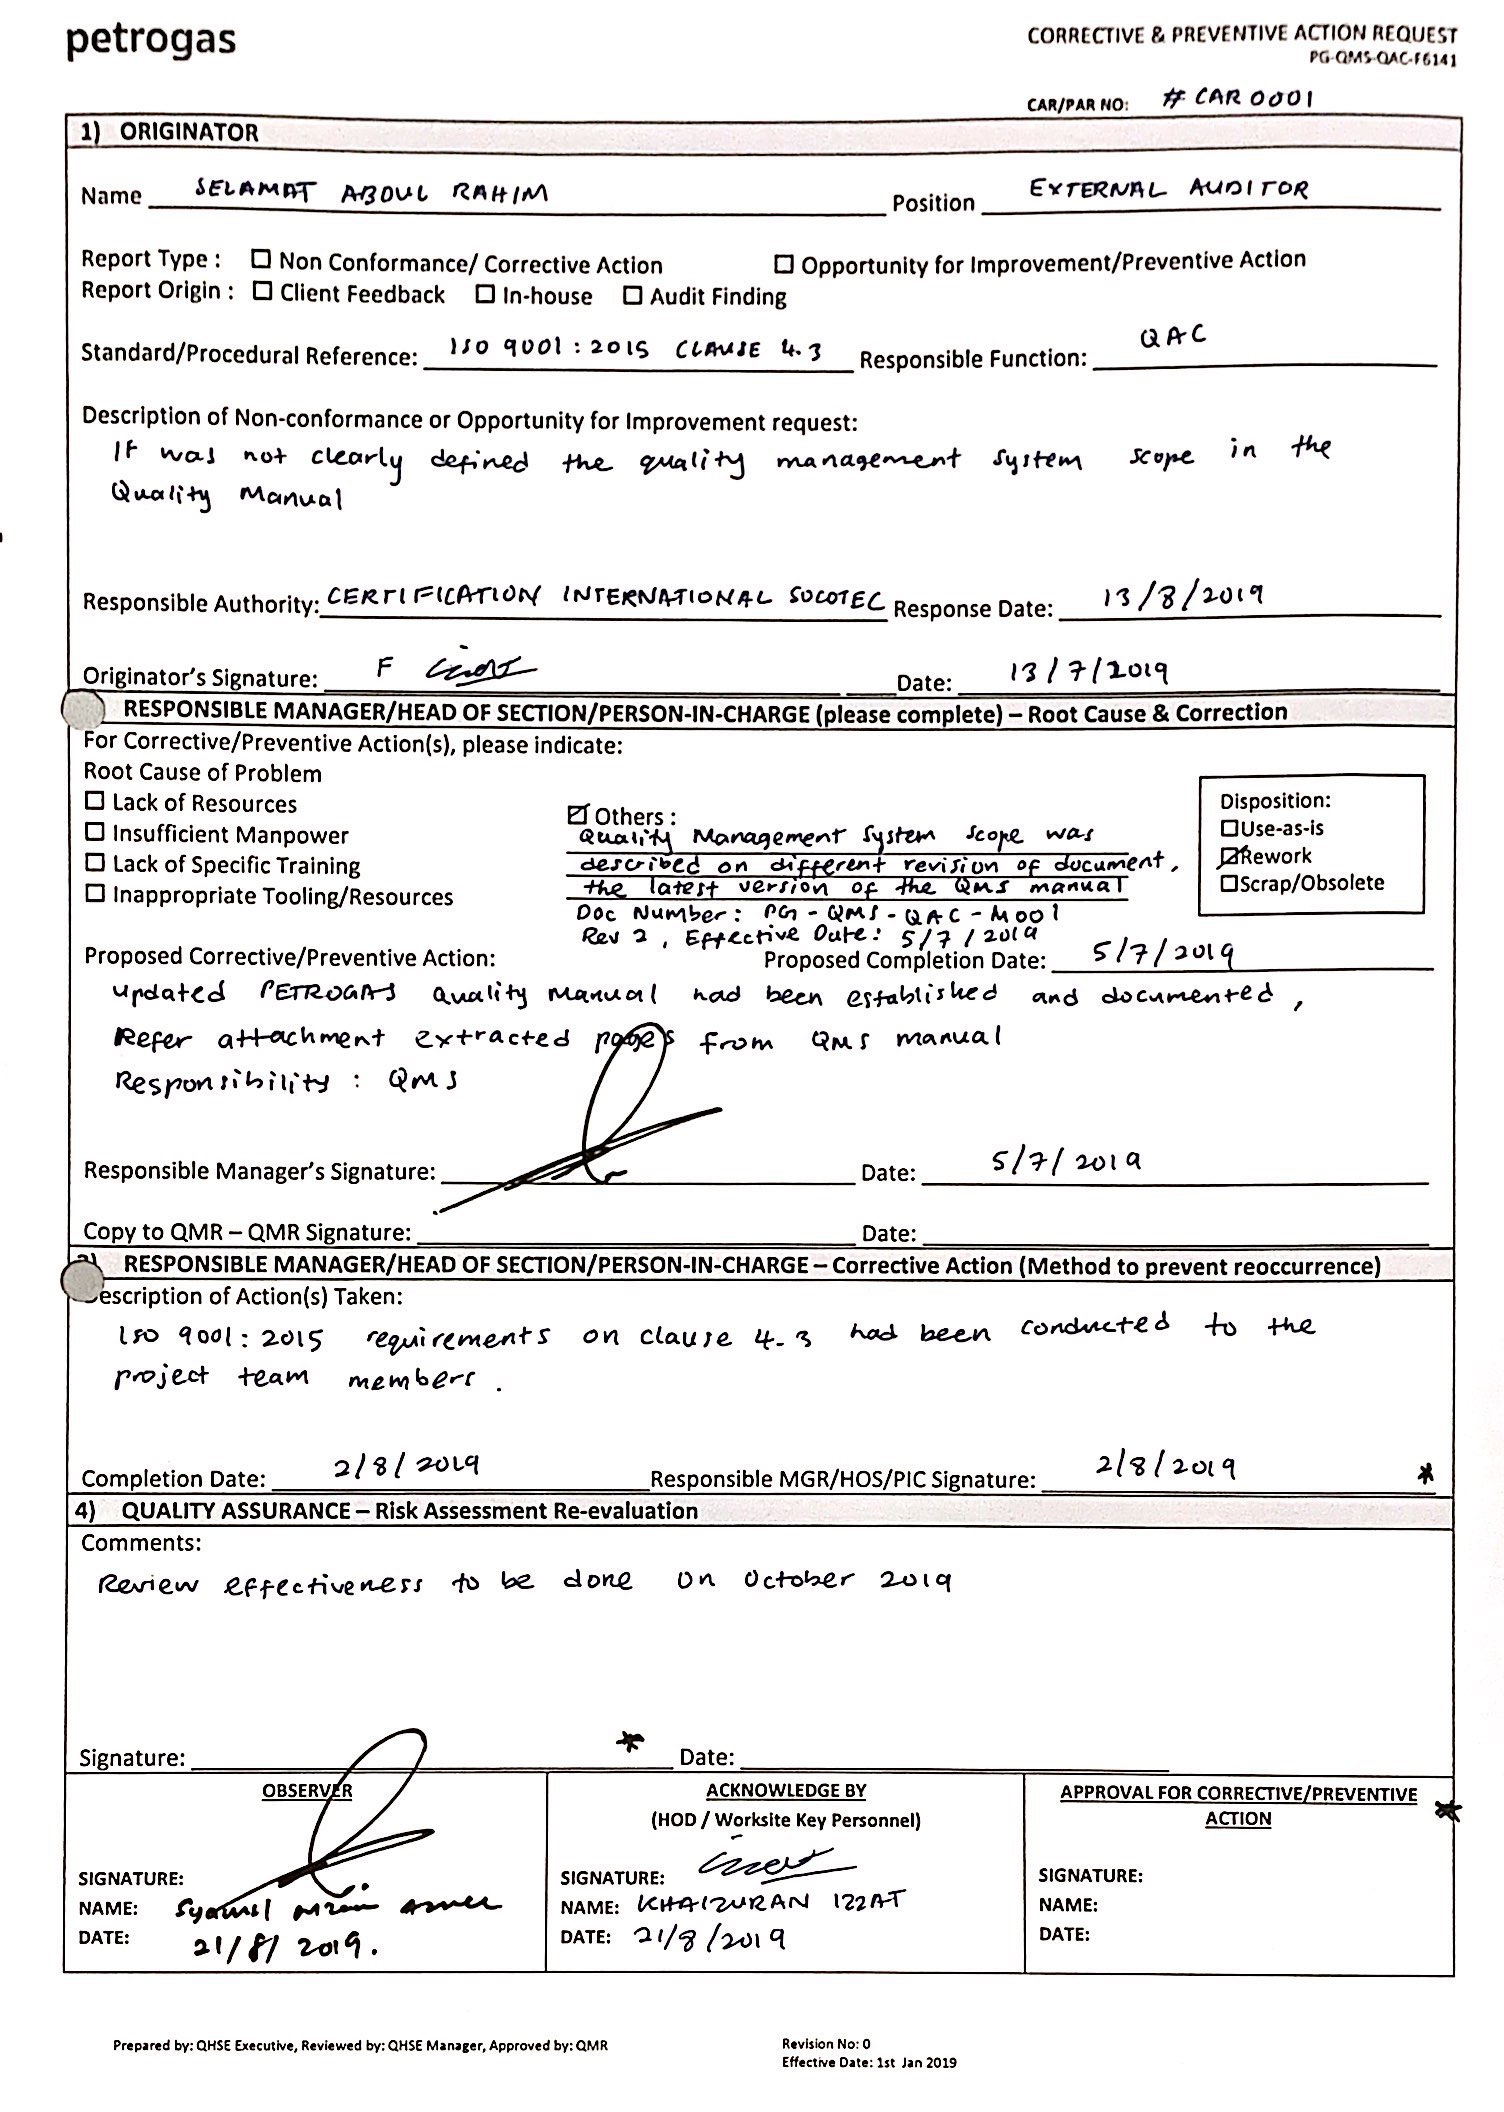 petrogas
CORRECTIVE & PREVENTIVE ACTION REQUEST
PG-QMS-QAC-F6141
CAR/PAR NO: # CAR 0001
1) ORIGINATOR
Name SELAMAT ABDUL RAHIM Position EXTERNAL AUDITOR
Report Type : ☐ Non Conformance/ Corrective Action ☐ Opportunity for Improvement/Preventive Action
Report Origin : ☐ Client Feedback ☐ In-house ☐ Audit Finding
Standard/Procedural Reference: ISO 9001 : 2015 CLAUSE 4.3 Responsible Function: QAC
Description of Non-conformance or Opportunity for Improvement request:
It was not clearly defined the quality management system scope in the
Quality Manual
Responsible Authority: CERTIFICATION INTERNATIONAL SOCOTEC Response Date: 13/8/2019
Originator's Signature: F Date: 13/7/2019
RESPONSIBLE MANAGER/HEAD OF SECTION/PERSON-IN-CHARGE (please complete) – Root Cause & Correction
For Corrective/Preventive Action(s), please indicate:
Root Cause of Problem
☐ Lack of Resources
☐ Insufficient Manpower
☐ Lack of Specific Training
☐ Inappropriate Tooling/Resources
☑ Others :
Quality Management System scope was
described on different revision of document,
the latest version of the QMS manual
Doc Number: PG-QMS-QAC-M001
Rev 2, Effective Date: 5/7/2019
Disposition:
☐Use-as-is
☑Rework
☐Scrap/Obsolete
Proposed Corrective/Preventive Action: Proposed Completion Date: 5/7/2019
updated PETROGAS Quality Manual had been established and documented,
Refer attachment extracted pages from QMS manual
Responsibility : QMS
Responsible Manager's Signature: Date: 5/7/2019
Copy to QMR – QMR Signature: Date:
RESPONSIBLE MANAGER/HEAD OF SECTION/PERSON-IN-CHARGE – Corrective Action (Method to prevent reoccurrence)
Description of Action(s) Taken:
ISO 9001: 2015 requirements on clause 4.3 had been conducted to the
project team members.
Completion Date: 2/8/2019 Responsible MGR/HOS/PIC Signature: 2/8/2019 *
4) QUALITY ASSURANCE – Risk Assessment Re-evaluation
Comments:
Review effectiveness to be done on October 2019
Signature: * Date:
OBSERVER
SIGNATURE:
NAME: Syamil
DATE: 21/8/2019.
ACKNOWLEDGE BY
(HOD / Worksite Key Personnel)
SIGNATURE:
NAME: KHAIZURAN IZZAT
DATE: 21/8/2019
APPROVAL FOR CORRECTIVE/PREVENTIVE *
ACTION
SIGNATURE:
NAME:
DATE:
Prepared by: QHSE Executive, Reviewed by: QHSE Manager, Approved by: QMR
Revision No: 0
Effective Date: 1st Jan 2019